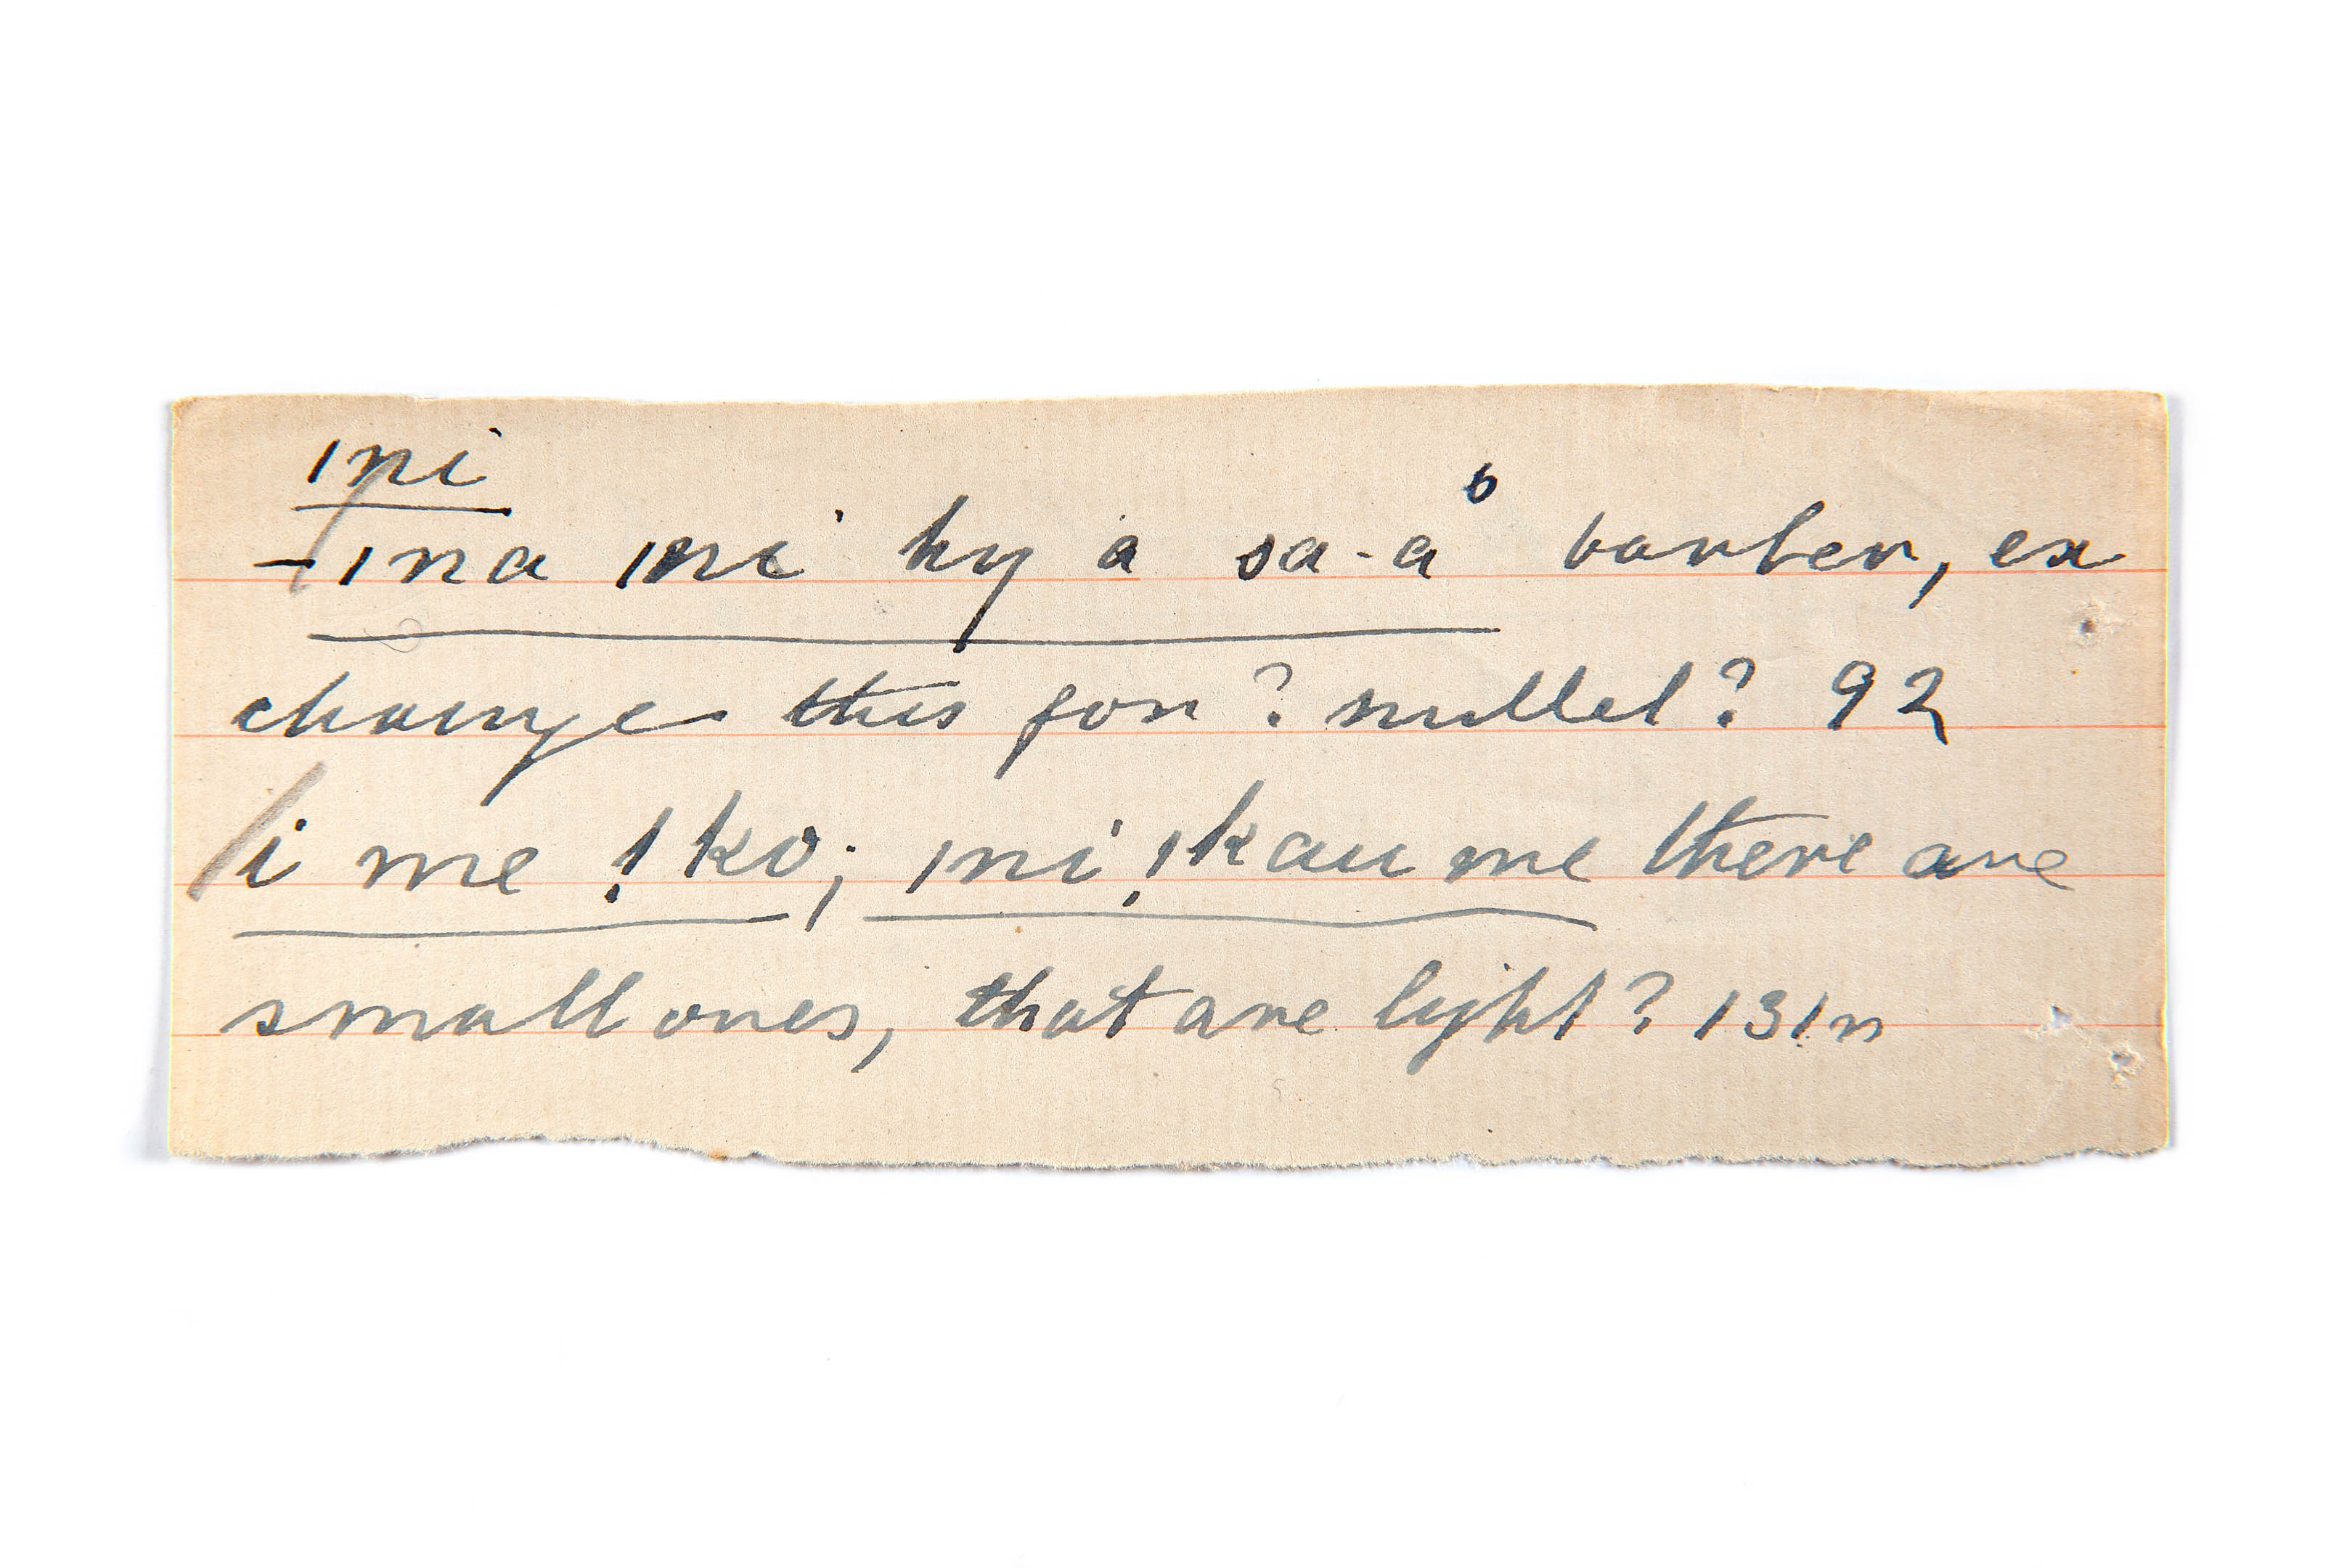 ıni
– ına ıni hy a sa-a° barter, ex
change this for ? mullet ? 92
i me !ko; ıni !kau me there are
small ones, that are light ? 131n